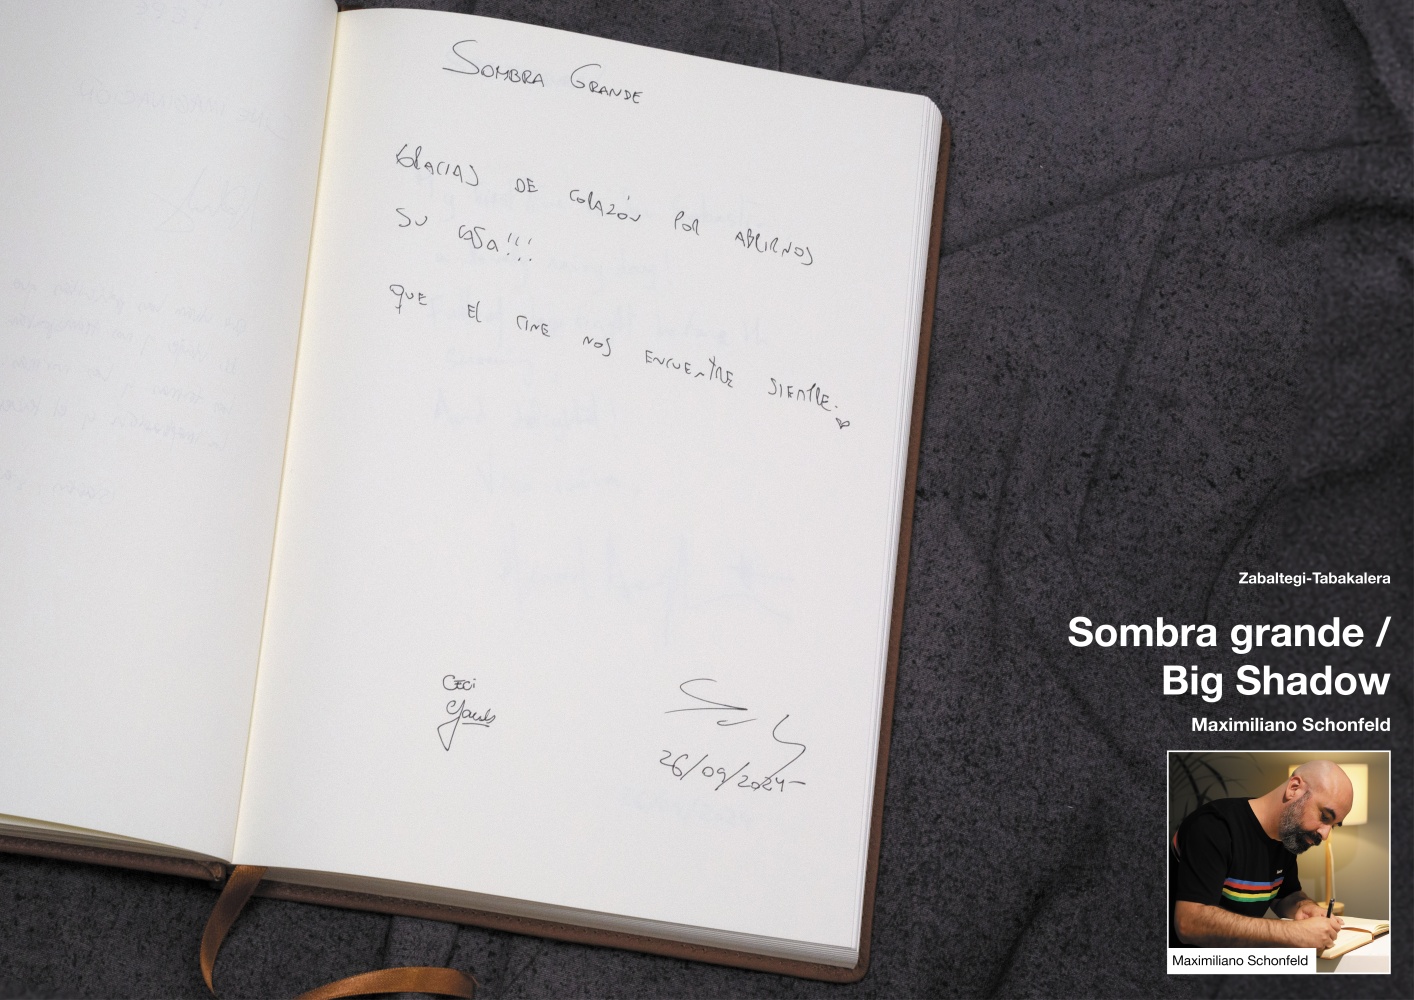 SOMBRA GRANDE
GRACIAS DE CORAZÓN POR ABRIRNOS
SU CASA!!!
QUE EL CINE NOS ENCUENTRE SIEMPRE.
CECI
26/09/2024
Zabaltegi-Tabakalera
Sombra grande /
Big Shadow
Maximiliano Schonfeld
Maximiliano Schonfeld